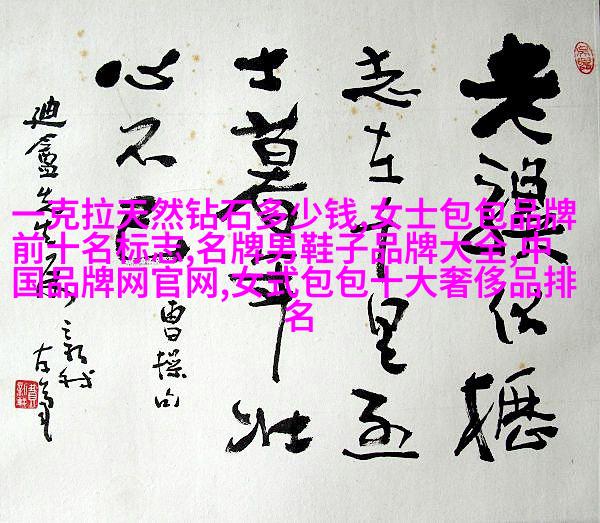 一克拉天然钻石多少钱,女士包包品牌
前十名标志,名牌男鞋子品牌大全,中
国品牌网官网,女式包包十大奢侈品排
名
老驥伏櫪
志在千里烈
士暮年壮
心不已
曹操句
迪盦先生属